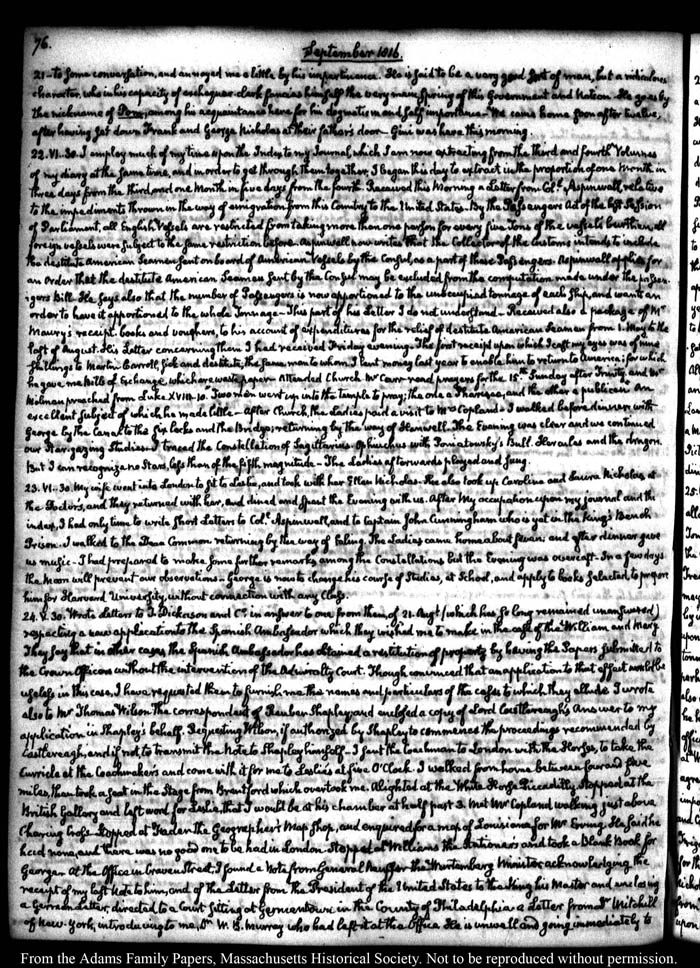 76.
September 1816.
21- to some conversation, and annoyed me a little by his impertinence. He is said to be a very good sort of man, but a ridiculous
character, who in his capacity of exchequer clerk fancies himself the very main spring of this Government and Nation. He goes by
the nickname of among his acquaintance here for his dogmatism and self importance. We came home soon after twelve,
after having set down Frank and George Nicholas at their father's door- was here this morning.
22. VI. 30. I employ much of my time upon the Index to my Journal which I am now extracting from the third and fourth Volumes
of my diary at the same time, and in order to get through them together, I began this day to extract in the proportion of one Month in
three days from the third and one Month in five days from the fourth. Received this Morning a Letter from Coll. Aspinwall, relative
to the impediments thrown in the way of emigration from this Country to the United States. By the Passengers Act of the last Session
of Parliament, all English Vessels are restricted from taking more than one person for every five Tons of the vessels burthen, all
foreign vessels were subject to the same restriction before. Aspinwall now writes that the Collector of the Customs intends to include
the destitute American Seamen sent on board of American Vessels by the Consul, as a part of these Passengers. Aspinwall applies for
an Order that the destitute American Seamen sent by the Consul may be excluded from the computation made under the passen-
gers bill. He says also that the number of Passengers is now apportioned to the unoccupied tonnage of each Ship, and wants an
order to have it apportioned to the whole Tonnage- This part of his Letter I do not understand- Received also a package of Mr
Maury's receipt books and vouchers, to his account of expenditures for the relief of destitute American Seamen from 1. May to the
last of August. His Letter concerning them I had received Friday evening. The first receipt upon which I cast my eyes was of nine
shillings to Martin Barroll, sick and destitute, the same man to whom I lent money last year to enable him to return to America; for which
he gave me bills of Exchange which are waste paper- Attended Church Mr Carr read prayers for the 15th Sunday after Trinity, and Mr
Milman preached from Luke XVIII. 10. Two men went up into the temple to pray; the one a Pharisee, and the other a publican. An
excellent subject of which he made little- After Church, the Ladies paid a visit to Mrs Copland- I walked before dinner, with
George by the Canal to the six locks and the Bridge; returning by the way of Hanwell. The Evening was clear and we continued
our Star-gazing Studies. I traced the Constellation of Sagittarius- Ophiuchus with Poniatowsky's Bull. Hercules and the dragon.
But I can recognize no Stars, less than of the fifth magnitude- The Ladies afterwards played and sung.
23. VI. 30. My wife went into London to sit to Leslie, and took with her Ellen Nicholas. She also took up Carolina and Laura Nicholas, at
the Doctors, and they returned with her, and dined and spent the Evening with us. After My occupation upon my journal and the
index, I had only time to write short Letters to Coll. Aspinwall, and to Captain John Cunningham who is yet in the King's Bench
Prison. I walked to the Common returning by the way of Ealing. The Ladies came home about seven; and after dinner gave
us music- I had prepared to make some further remarks among the Constellations but the Evening was overcast- In a few days
the Moon will prevent our observations- George is now to change his course of Studies, at School, and apply to books selected to prepare
him for Harvard University, without connection with any Class.
24. V. 30. Wrote Letters to J. Dickerson and Co. in answer to one from them, of 21. Augt. (which has so long remained unanswered)
respecting a new application to the Spanish Ambassador which they wished me to make in the case of the William and Mary.
They say that in other cases, the Spanish Ambassador has obtained a restitution of property by having the Papers submitted to
the Crown Officers without the intervention of the Admiralty Court. Though convinced that an application to that effect would be
useless in this case, I have requested them to furnish me the names and particulars of the cases to which they allude. I wrote
also to Mr Thomas Wilson the correspondent of Reuben Shapley, and enclosed a copy of Lord Castlereagh's Answer to my
application in Shapley's behalf. Requesting Wilson, if authorized by Shapley to commence the proceedings recommended by
Castlereagh, and if not, to transmit the Note to Shapley himself- I sent the Coachman to London with the Horses, to take the
Curricle at the Coachmakers and come with it for me to Leslie's at five O'Clock. I walked from home between four and five
miles, then took a seat in the Stage from Brentford which overtook me. Alighted at the White Horse Piccadilly, stopped at the
British Gallery and left word for Leslie, that I would be at his chamber at half past 3. Met Mr Copland walking just above
Charing Cross. Stopped at Faden the Geographer's Map Shop, and enquired for a map of Louisiana for Mr Erving. He said he
had none, and there was no good one to be had in London. Stopped at Williams the Stationers and took a Blank Book for
George. At the Office in Craven Street, I found a Note from General the Wurtemberg Minister, acknowledging the
receipt of my last Note to him, and of the Letter from the President of the United States to the King his Master and enclosing
a German Letter, directed to a Court sitting at Germantown in the County of Philadelphia. a Letter from Dr Mitchill
of New-York, introducing to me, Dr W. B. Murray who had left it at the Office. He is unwell and going immediately to
From the Adams Family Papers, Massachusetts Historical Society. Not to be reproduced without permission.